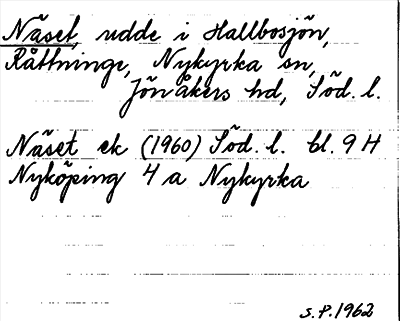 Näset, udde i Hallbosjön,
Råttninge, Nykyrka sn,
Jönåkers hd, Söd. l.
Näset ek (1960) Söd. l. bl. 9 H
Nyköping 4 a Nykyrka
S.P. 1962